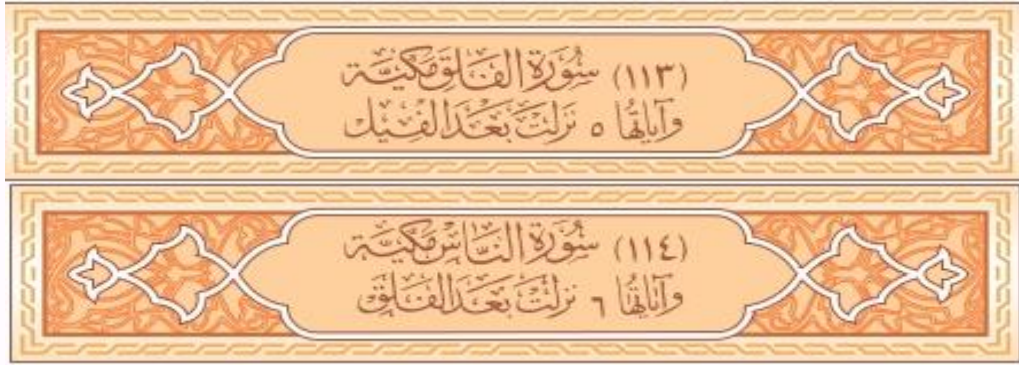 (١١٣) سُورَة الفَلَق مَكيَّة
وآياتُها ٥ نزلَت بَعْدَ الفِيل
(١١٤) سُورَة النَّاس مَكيَّة
وآياتُها ٦ نزلَت بَعْدَ الفَلَق